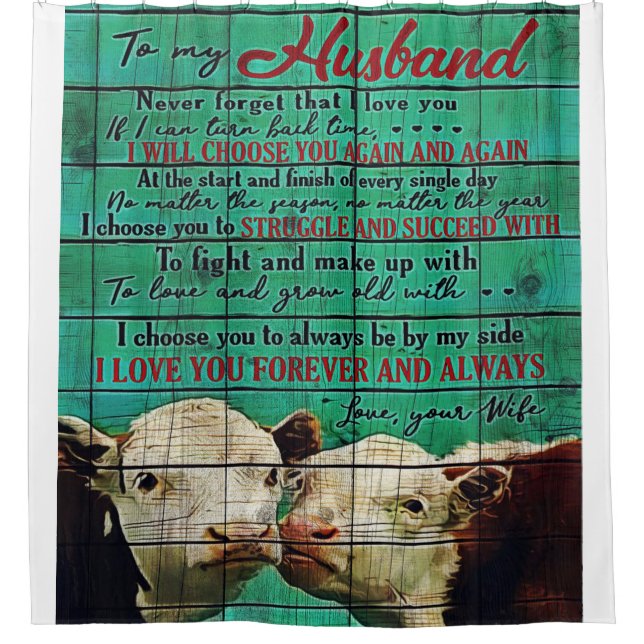 To my Husband
Never forget that I love you
If I can turn back time,
I WILL CHOOSE YOU AGAIN AND AGAIN
At the start and finish of every single day
No matter the season, no matter the year
I choose you to STRUGGLE AND SUCCEED WITH
To fight and make up with
To love and grow old with
I choose you to always be by my side
I LOVE YOU FOREVER AND ALWAYS
Love, your Wife